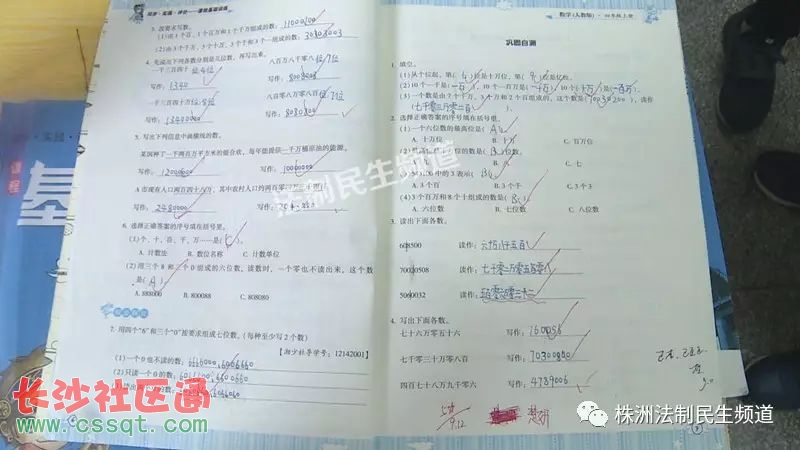 同步·实践·评价——课程基础训练
3. 按要求写数。
(1)由1个千、1个百万和1个千万组成的数：11000000
(2)由3个千万、3个十万、3个千和3个一组成的数：30303003
4. 先说出下列各数分别是几位数，再写出来。
一千三百四十 位4位 八百万八千零八 位7位
写作：1340 写作：8008008
一千三百四十万 位8位 八百零八万零八百 位7位
写作：13400000 写作：8080800
5. 写出下列信息中画横线的数。
某国种了一千两百万平方米的银合欢，每年能提供一千万桶原油的能源。
写作：12000000 写作：10000000
A市现有人口两百四十八万，其中农村人口
写作：2480000 写作：
6. 选择正确答案的序号填在括号里。
(1)个、十、百、千、万……是( )。
A. 计数法 B. 数位名称 C. 计数单位
(2)用三个8和三个0组成的六位数，读数时，一个零也不读出来，这个数
是( A )。
A. 888000 B. 800088 C. 808080
7. 用四个“6”和三个“0”按要求组成七位数。(每种至少写2个数)
【湘少社导学号：12142001】
(1)一个0也不读的数：
(2)只读一个0的数：
数学(人教版)·四年级上册
巩固自测
1. 填空。
(1)从个位起，第( 6 )位是十万位，第( 9 )位是亿位。
(2)10个一千是(一万)，10个一百万是(一千万)，10个(十万)是(一百万)。
(3)一个数是由7个千万、3个十万和2个百组成的，这个数是(70300200)，读作
2. 选择正确答案的序号填在括号里。
(1)一个六位数的最高位是( A )。
A. 十万位 B. 十万 C. 百万位
B. 八 C. 七
A. 3个百 B. 3个千 C. 3个3
(4)3个百万和8个十组成的数是( B )。
A. 六位数 B. 七位数 C. 八位数
3. 读出下面各数。
608500 读作：
70020508 读作：七千零二万零五百零八
5080032 读作：
4. 写出下面各数。
七十六万零五十六 写作：760056
七千零三十万零八百 写作：70300800
四百七十八万九千零六 写作：4789006
9.12
基
课程
法制民生频道
长沙社区通
www.cssqt.com
株洲法制民生频道